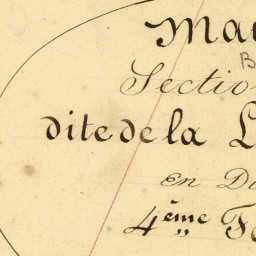 Mai
B
Section
dite de la L
En D
4ème Fe